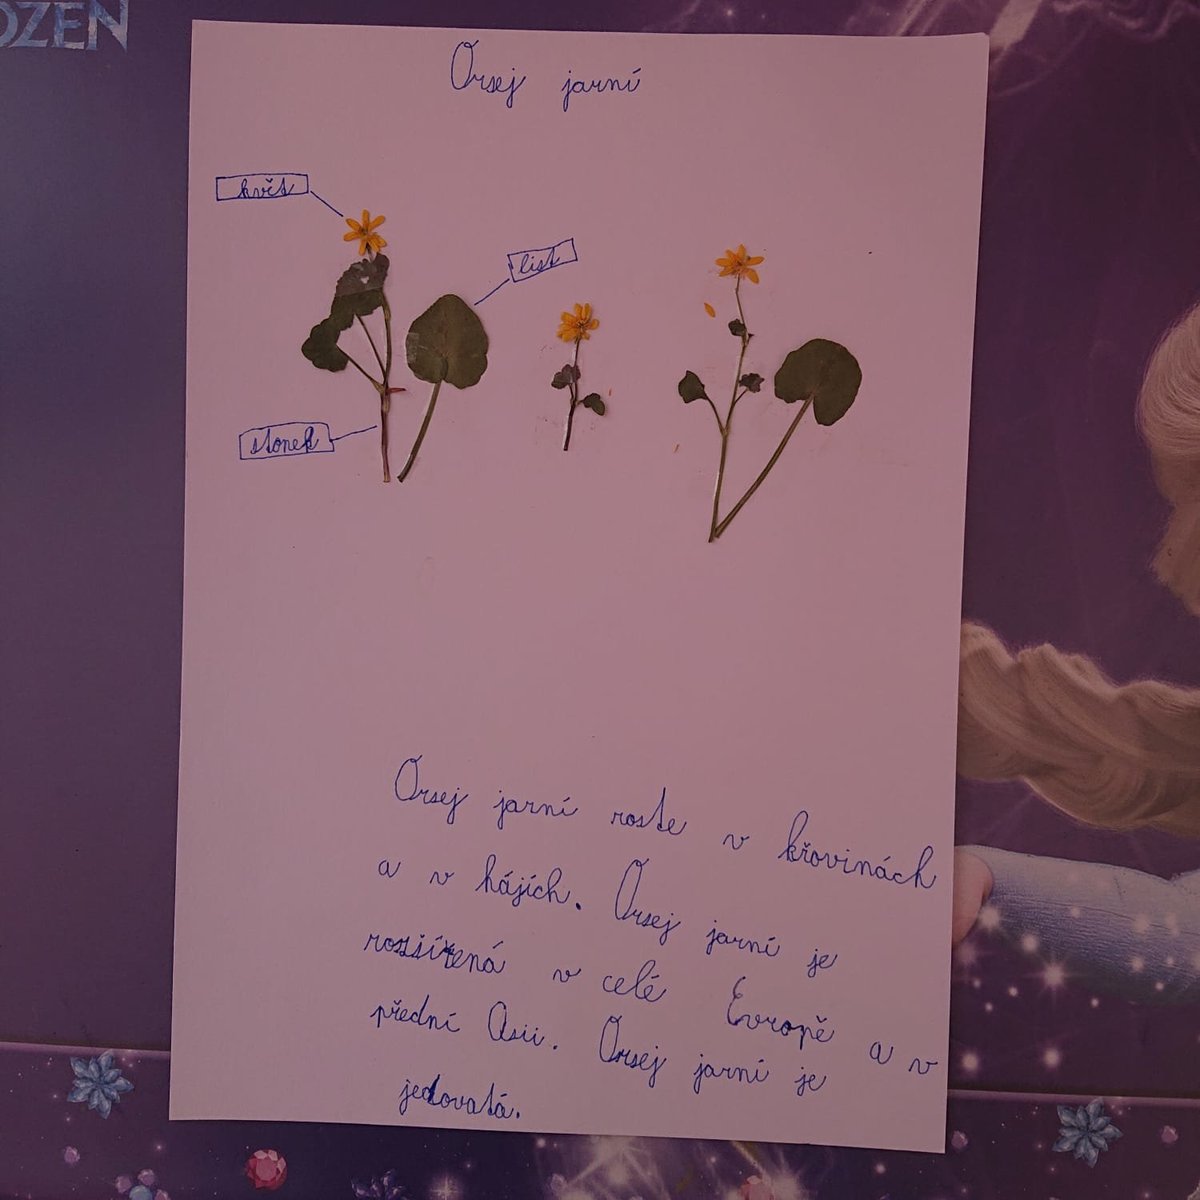 OZEN
Orsej jarní
květ
list
stonek
Orsej jarní roste v křovinách
a v hájích. Orsej jarní je
rozšířená v celé Evropě a v
přední Asii. Orsej jarní je
jedovatá.